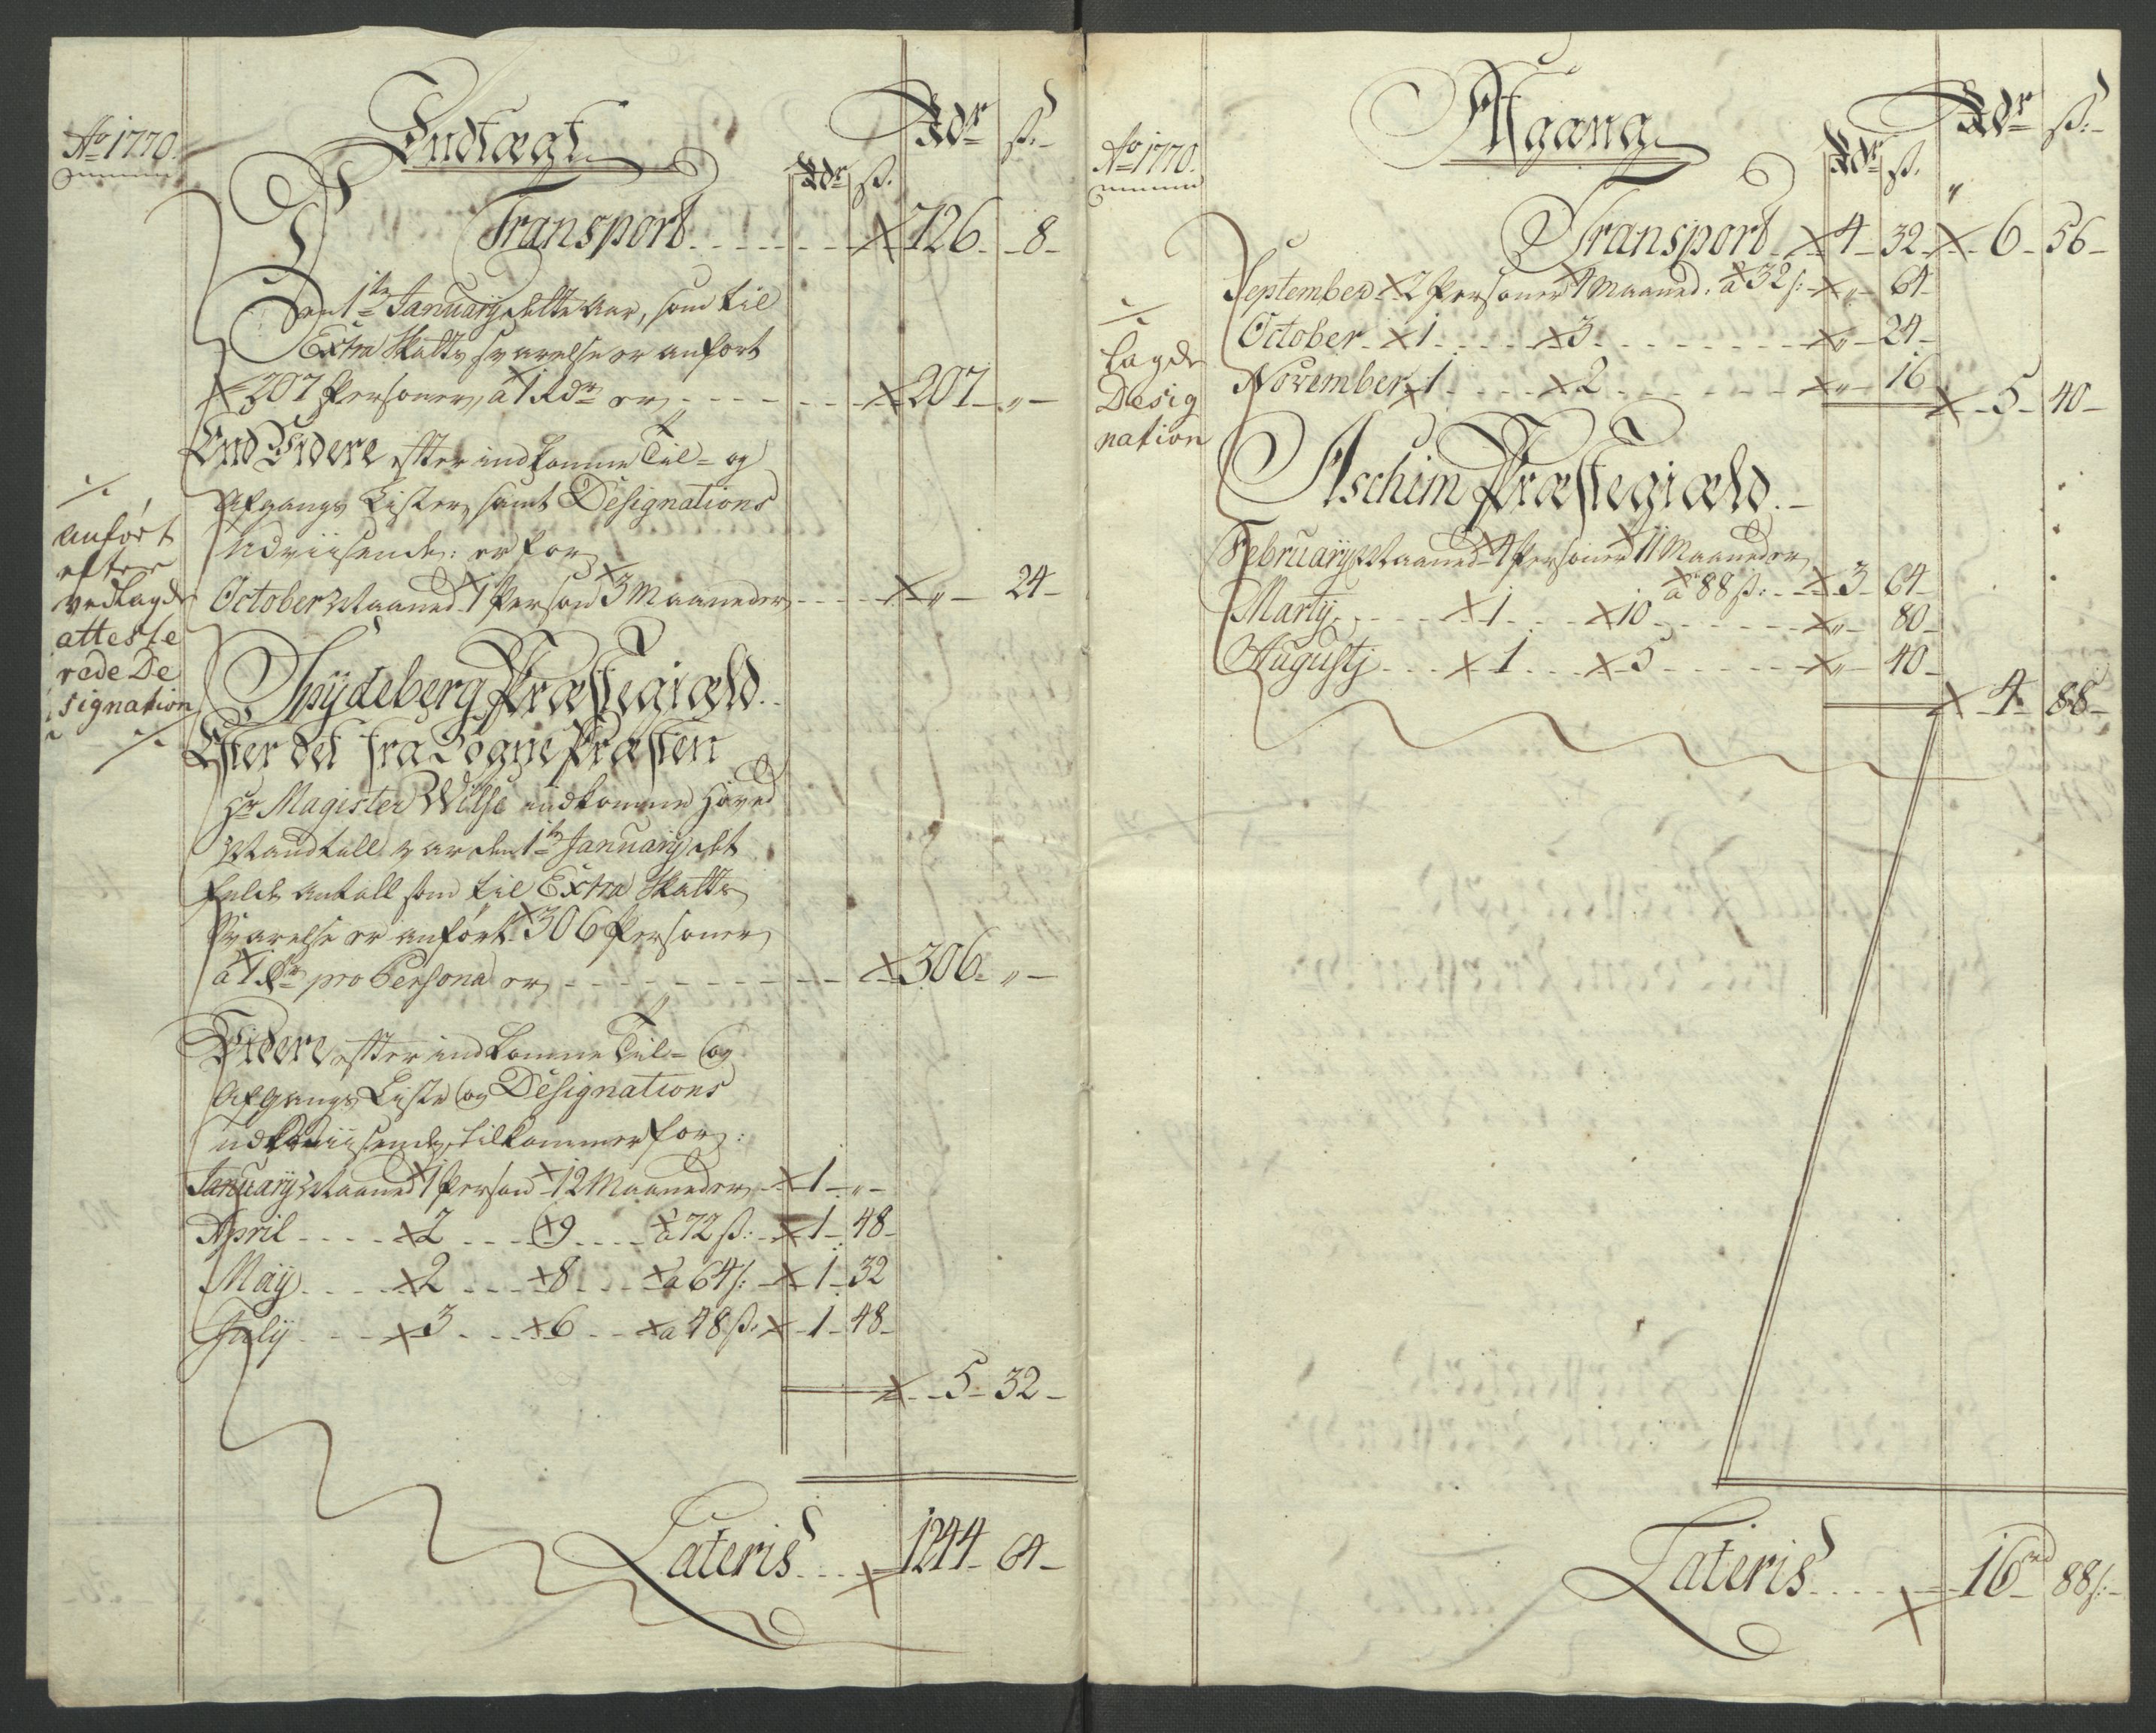 Ao 1770.
Indtægt
Rdr ß.
Rdr ß.
Transport 726 8
Den 1te January dette Aar, som til
Extra Skatts svarelse er anført
207 Personer, a 1 Rdr er 207 "
End Videre efter indkomne Til- og
Afgangs Lister, samt Designations
Udviisende: er for
October Maaned 1 Person 3 Maaneder " 24
./.
anført
efter
vedlagde
atteste
rede De
signation
./.
Spydeberg Præstegiæld.
Efter det fra Sogne Præsten
Hr Magister Wilse indkomne Hoved
Mandtall var den 1te January det
fulde Antall som til Extra Skatts
Svarelse er anført 306 Personer
a 1 Rdr pro Persona er 306 "
Videre efter indkomne Til- og
Afgangs Liste og Designations
udviisende, tilkommer for:
January Maaned 1 Person 12 Maaneder 1 "
April 2 9 a 72 ß: 1 48
May 2 8 a 64 ß: 1 32
July 3 6 a 48 ß: 1 48
5 32
Lateris 1244 64
Ao 1770.
Afgang
Rdr ß.
Rdr ß.
Transport 4 32 6 56
September 2 Personer 4 Maaned: a 32 ß: " 64
October 1 3 " 24
November 1 2 " 16
5 40
./.
lagde
Desig
nation
Aschim Præstegiæld.
February Maaned 4 Personer 11 Maaneder
a 88 ß: 3 64
Marty 1 10 " 80
Augusty 1 5 " 40
4 88
Lateris 16rd 88 ß: